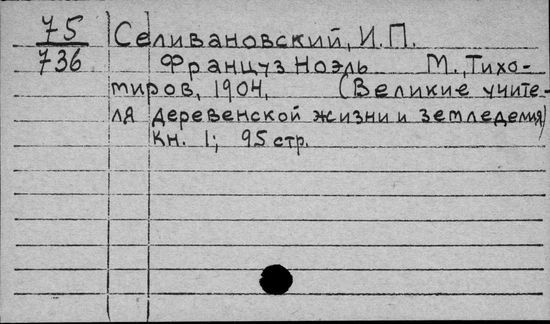 75 Селивановский, И.П.
736 Француз Ноэль М., Тихо-
миров, 1904, (Великие учите-
ля деревенской жизни и земледелия)
Кн. 1; 95 стр.